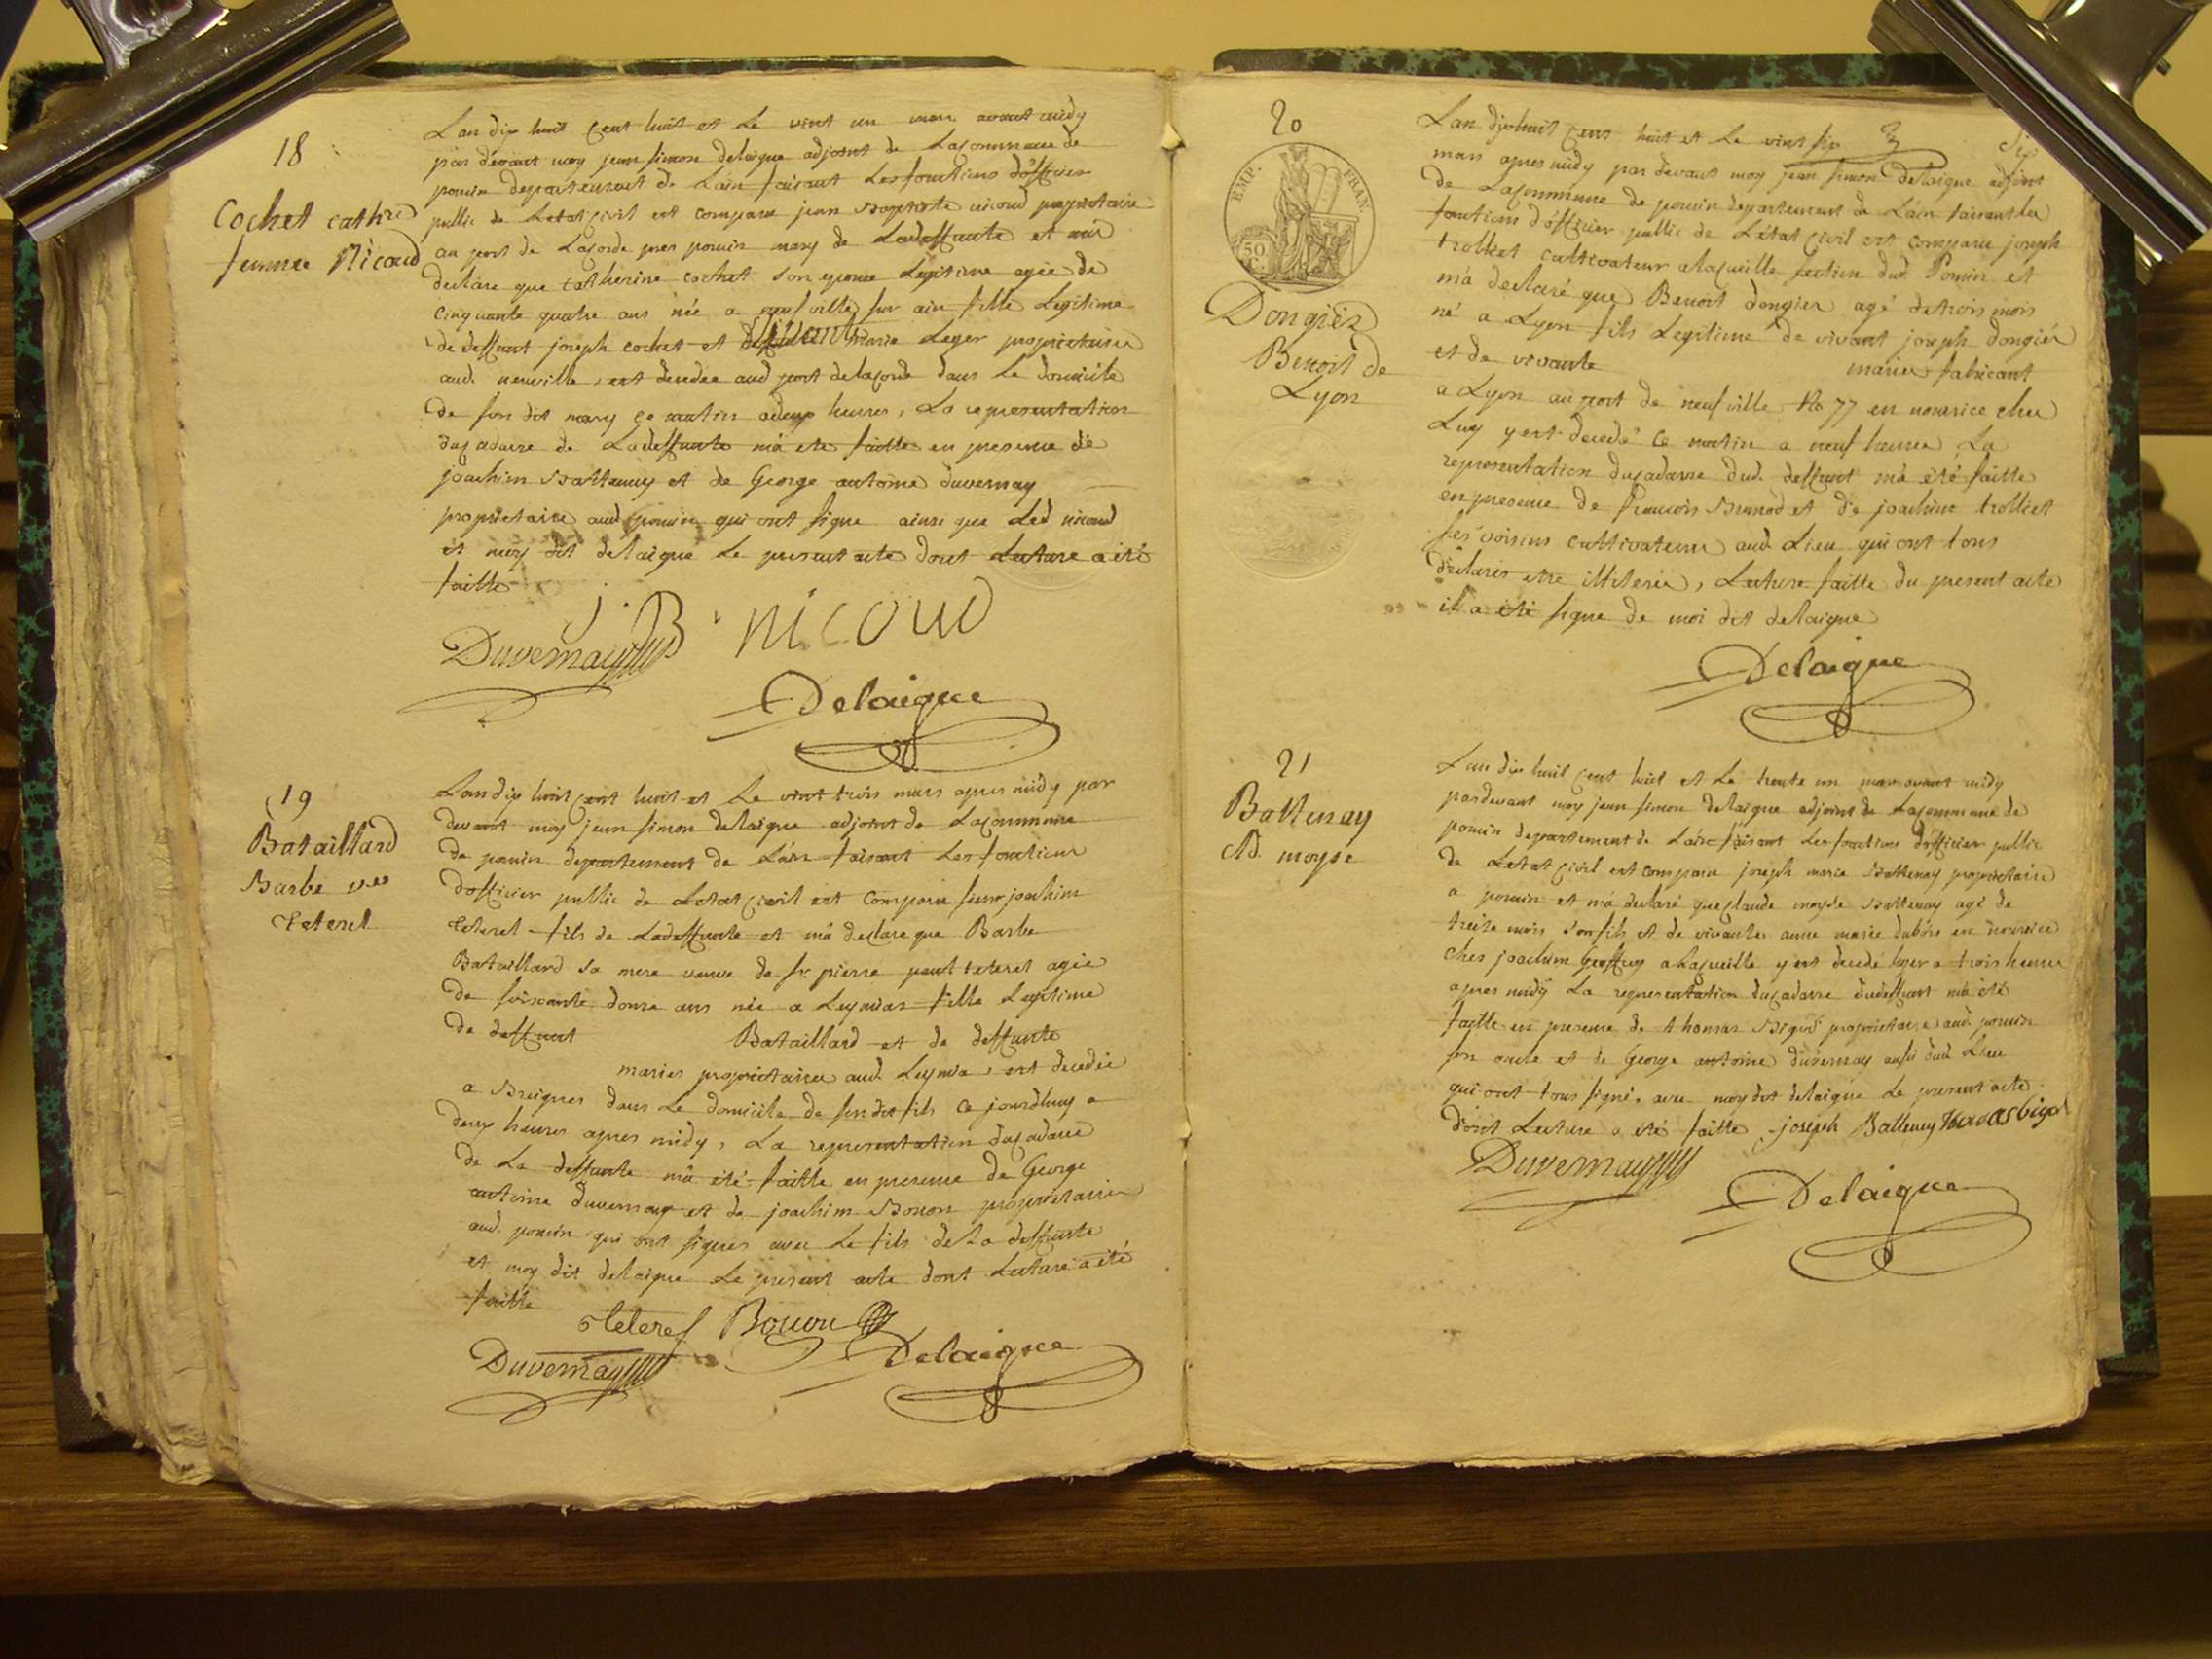 18
Cochet cath.re
femme Nicoud
Lan dix huit cent huit et Le vint un mars avant midy
par devant moy jean simon delaigue adjoint de Lacommune de
poncin departement de Lain faisant Les fonctions d'officier
public de Letat Civil est comparu jean Baptiste nicoud proprietaire
au port de Lacorde pres poncin mary de Ladeffunte et mà
declare que catherine cochet son epouse Legitime agée de
cinquante quatre ans née a neuf ville sur ain fille Legitime
de deffunt joseph cochet et de marie Leger proprietaire
aud. neuville, est decedée aud port delacorde dans Le domicile
de son dit mary ce matin adeux heures, La representation
ducadavre de Ladeffunte mà ete faitte en presence de
joachim Battenay et de George antoine duvernay
proprietaire aud poncin qui ont signe ainsi que Led nicoud
et moy dit delaigue Le present acte dont Lecture a été
faitte
j. B. nicoud
Duvernay
Delaigue
19
Bataillard
Barbe v.ve
teteret
Lan dix huit cent huit et Le vint trois mars apres midy par
devant moy jean simon delaigue adjoint de Lacommune
de poncin departement de Lain faisant Les fonctions
dofficier public de Letat Civil est comparu sieur joachim
teteret fils de Ladeffunte et mà declare que Barbe
Bataillard sa mere veuve de sr. pierre paul teteret agée
de soixante douze ans née a Leymiar fille Legitime
de deffunt Bataillard et de deffunte
mariés proprietaires aud. Leymia, est decedée
a Breignes dans Le domicile de son dit fils ce jourdhuy a
deux heures apres midy, La representation ducadavre
de La deffunte mà été faitte en presence de George
antoine duvernay et de joachim Bouon proprietaires
aud. poncin qui ont signés avec Le fils de La deffunte
et moy dit delaigue Le present acte dont Lecture a été
faitte
teteret Bouon
Duvernay Delaigue
20
EMP. FRAN.
50 C.
Dongiez
Benoit de
Lyon
Lan dixhuit cens huit et Le vint six six
mars apres midy par devant moy jean simon delaigue adjoint
de Lacommune de poncin departement de Lain faisant les
fonctions d'officier public de Letat Civil est comparu joseph
trolliet cultivateur alacueille section dud. Poncin et
mà declaré que Benoit dongier agé detrois mois
né a Lyon fils Legitime de vivant joseph dongiér
et de vivante mariés fabricant
a Lyon au port de neufville No 77 en nourrice chez
Luy y est decedé ce matin a neuf heures La
representation ducadavre dud. deffunt mà été faitte
en presence de François Brunod et de joachim trolliet
ses voisins cultivateurs aud. Lieu qui ont tous
declarés etre illiterés, Lecture faitte du present acte
il a été signe de moi dit delaigue
Delaigue
21
Battenay
Cld. moyse
Lan dix huit cent huit et Le trente un mars avant midy
pardevant moy jean simon delaigue adjoint de Lacommune de
poncin departement de Lain faisant Les fonctions d'officier public
de Letat Civil est comparu joseph marie Battenay proprietaire
a poncin et mà declaré queclaude moyse Battenay agé de
treize mois son fils et de vivante anne marie dubois en nourrice
chés joachim Geoffrey alacueille y est decedé hyer a trois heures
apres midy La representation ducadavre dudeffunt mà été
faitte en presence de thomas Bigod proprietaire aud. poncin
son oncle et de George antoine duvernay aussi dud. Lieu
qui ont tous signé. avec moy dit delaigue Le present acte
dont Lecture a été faitte joseph Battenay
Duvernay
Delaigue